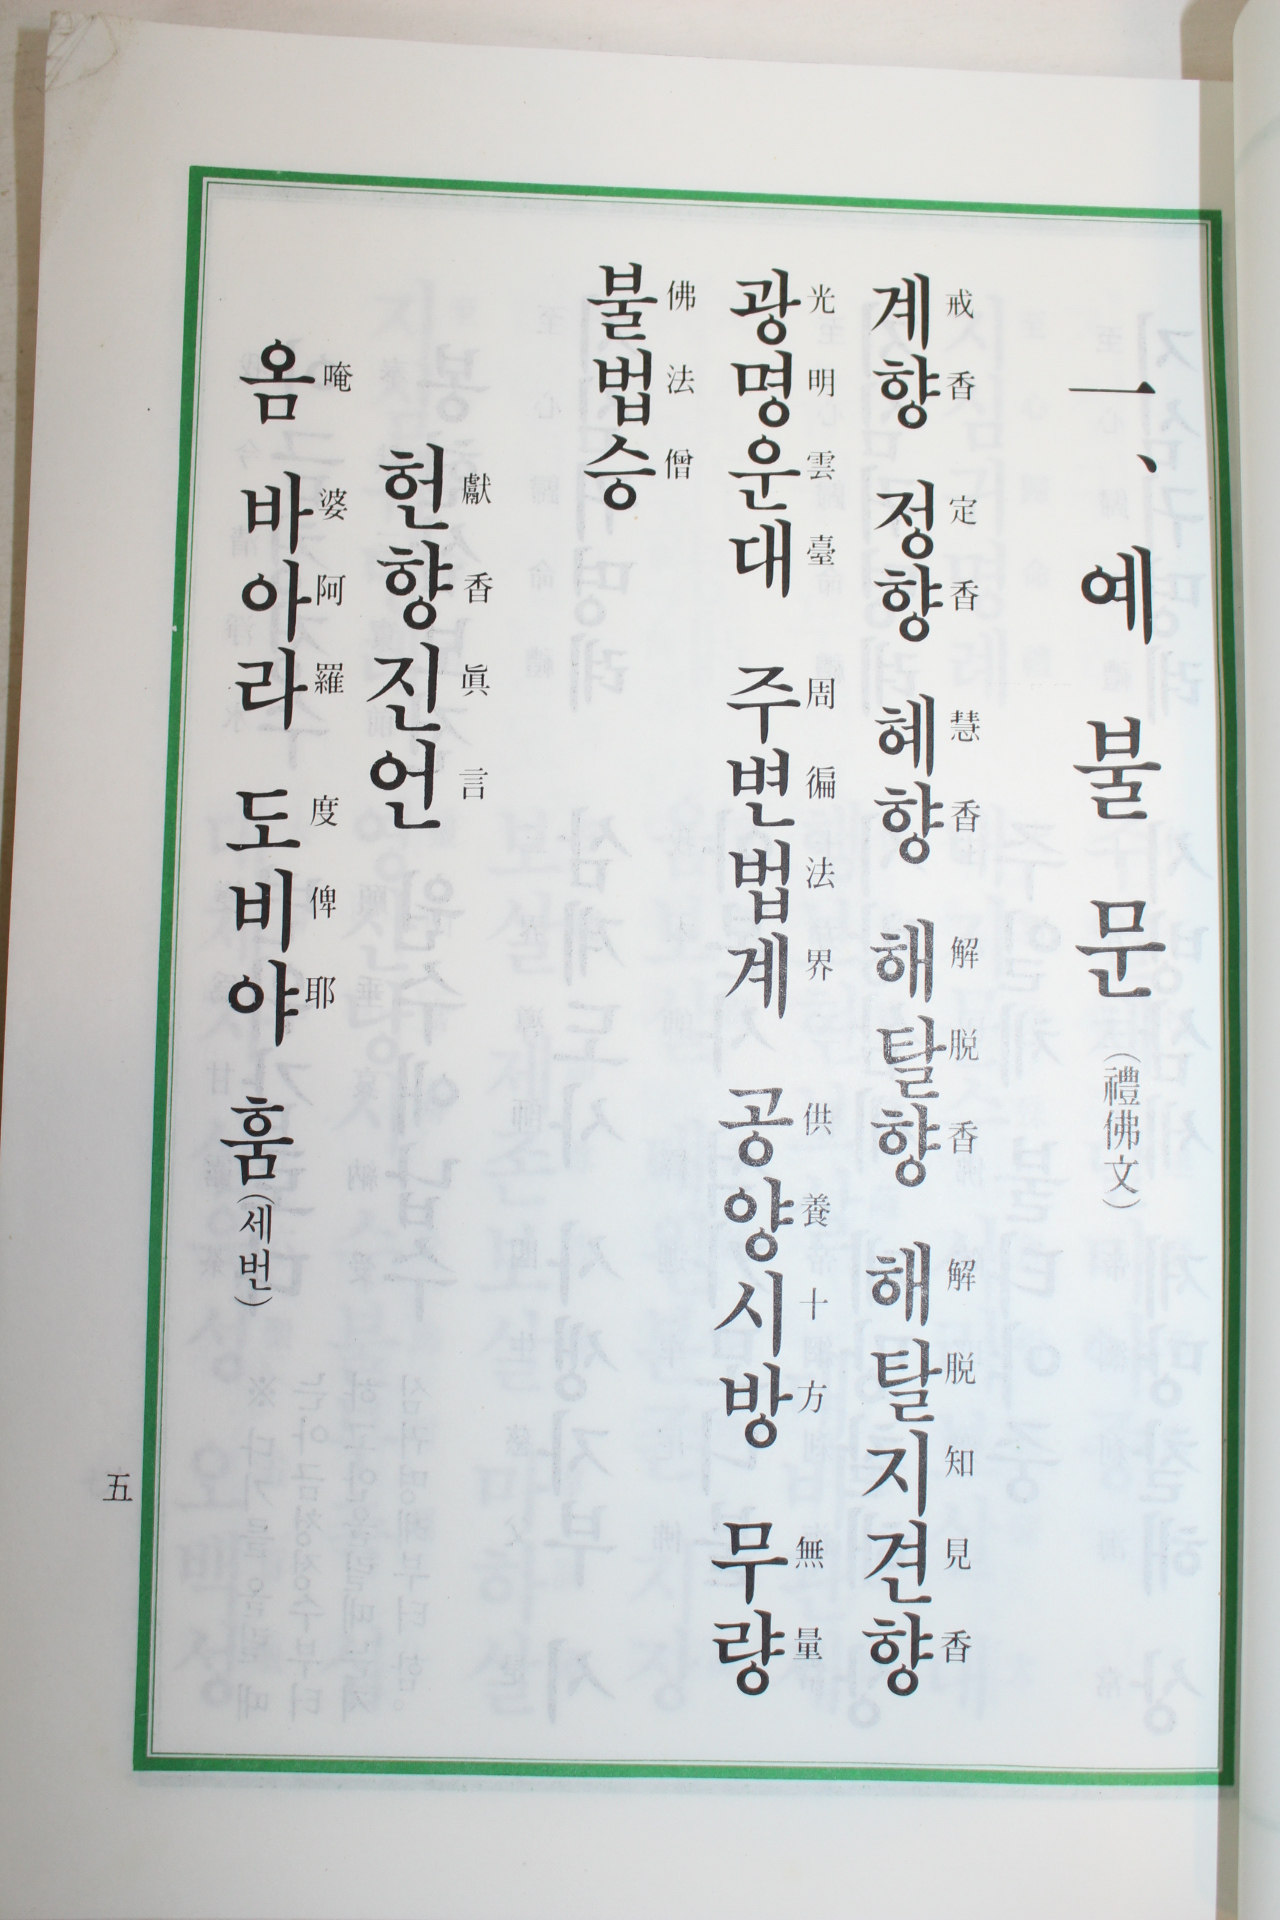 一、예 불 문 (禮佛文)
戒香 定香 慧香 解脱香 解脱知見香
계향 정향 혜향 해탈향 해탈지견향
光明雲臺 周徧法界 供養十方 無量
광명운대 주변법계 공양시방 무량
佛法僧
불법승
獻香眞言
헌향진언
唵 婆阿羅 度俾耶
옴 바아라 도비야 훔(세번)
五